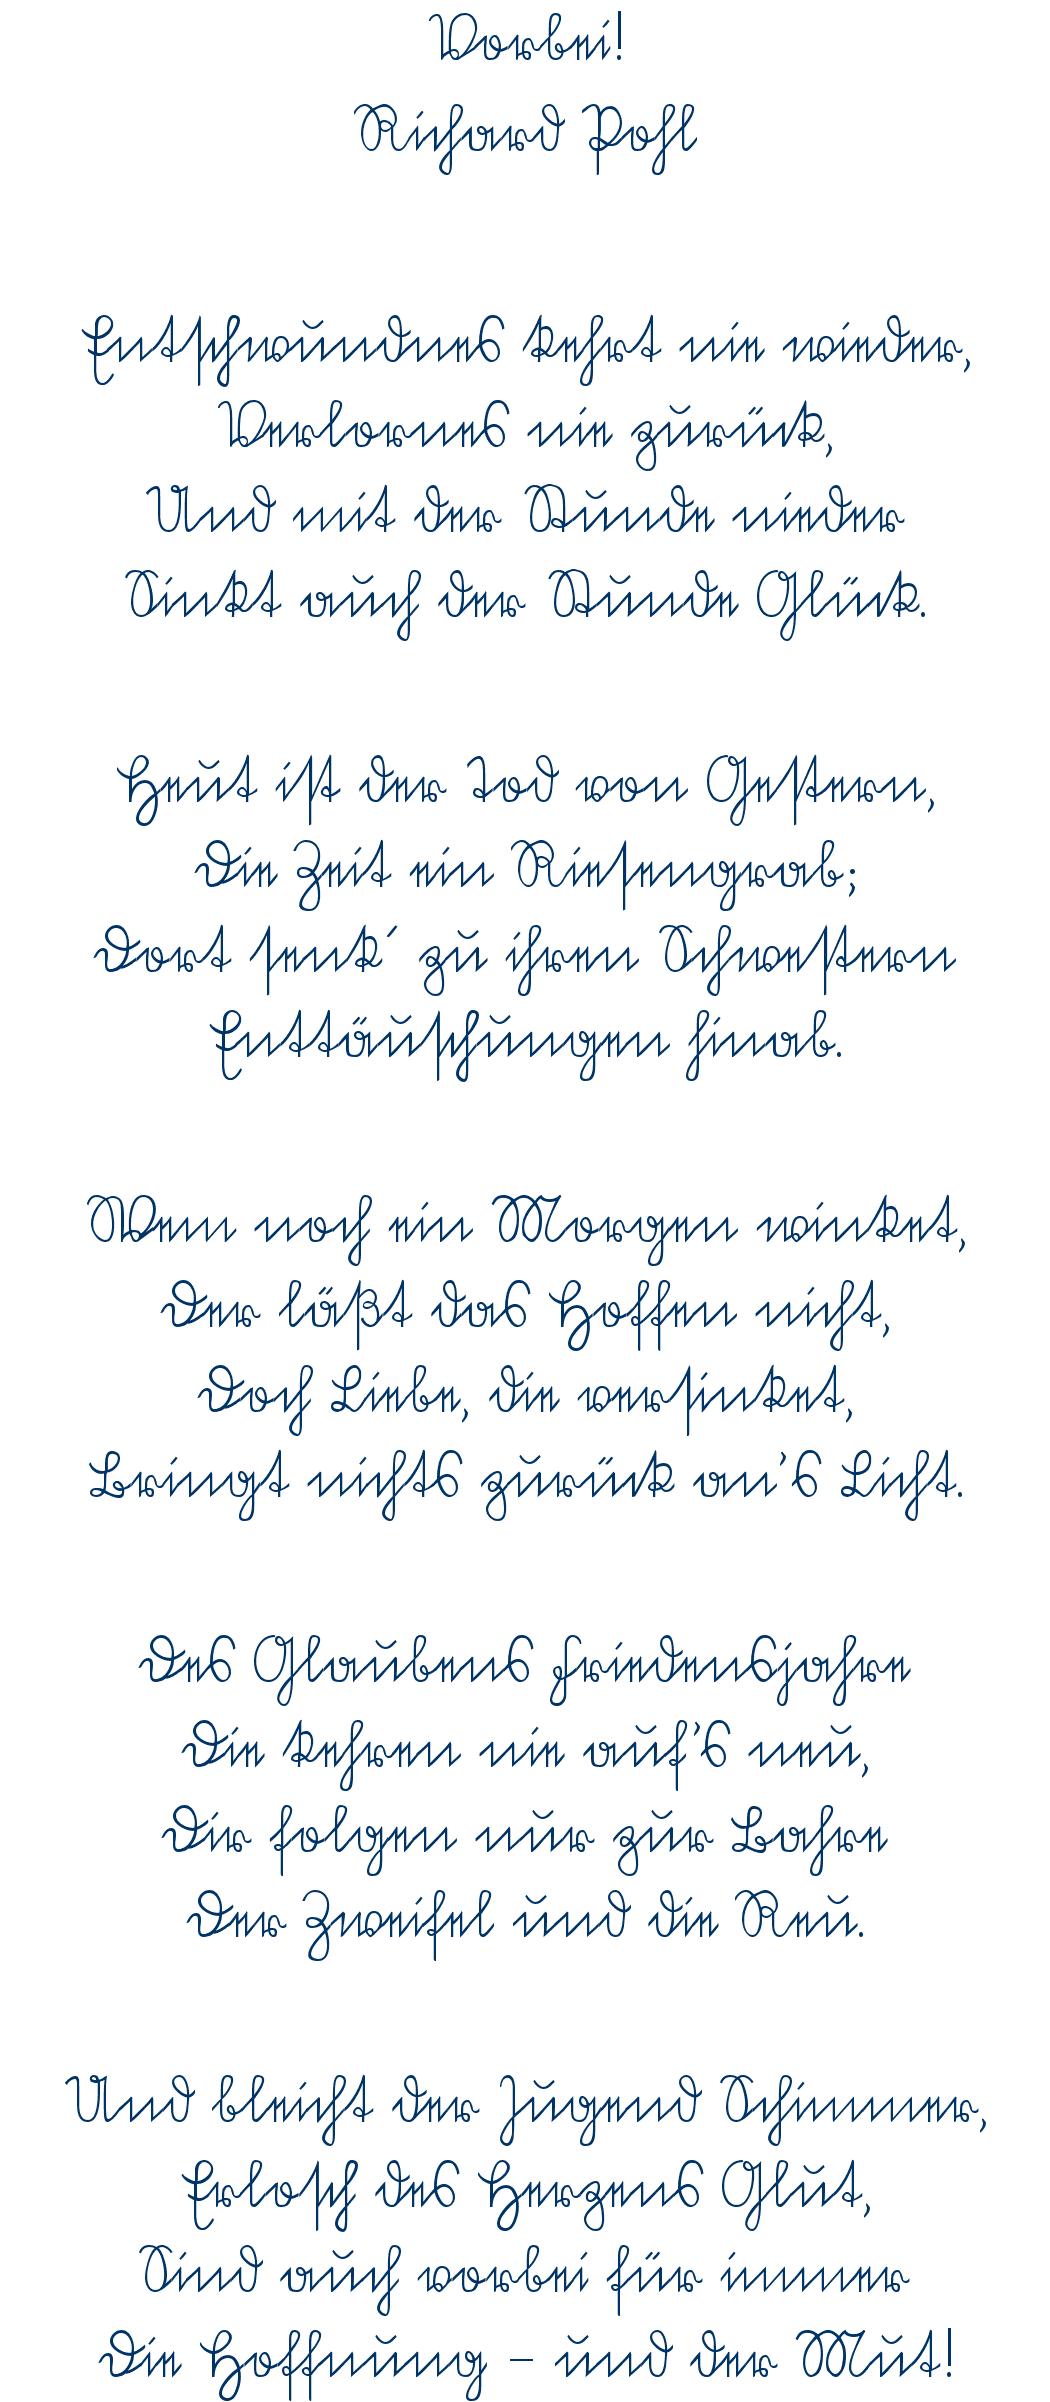 Vorbei!
Richard Pohl
Entschwundnes kehrt nie wieder,
Verlornes nie zurück,
Und mit der Stunde nieder
Sinkt auch der Stunde Glück.
Heut ist der Tod von Gestern,
Die Zeit ein Riesengrab;
Dort senk´ zu ihren Schwestern
Enttäuschungen hinab.
Wem noch ein Morgen winket,
Der läßt das Hoffen nicht,
Doch Liebe, die versinket,
Bringt nichts zurück an's Licht.
Des Glaubens Friedensjahre
Die kehren nie auf's neu,
Dir folgen nur zur Bahre
Der Zweifel und die Reu.
Und bleicht der Jugend Schimmer,
Erlosch des Herzens Glut,
Sind auch vorbei für immer
Die Hoffnung – und der Mut!